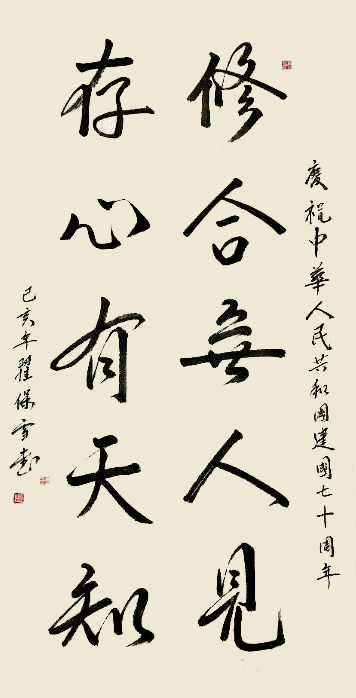 慶祝中華人民共和國建國七十周年
修合無人見
存心有天知
己亥年翟保雪書